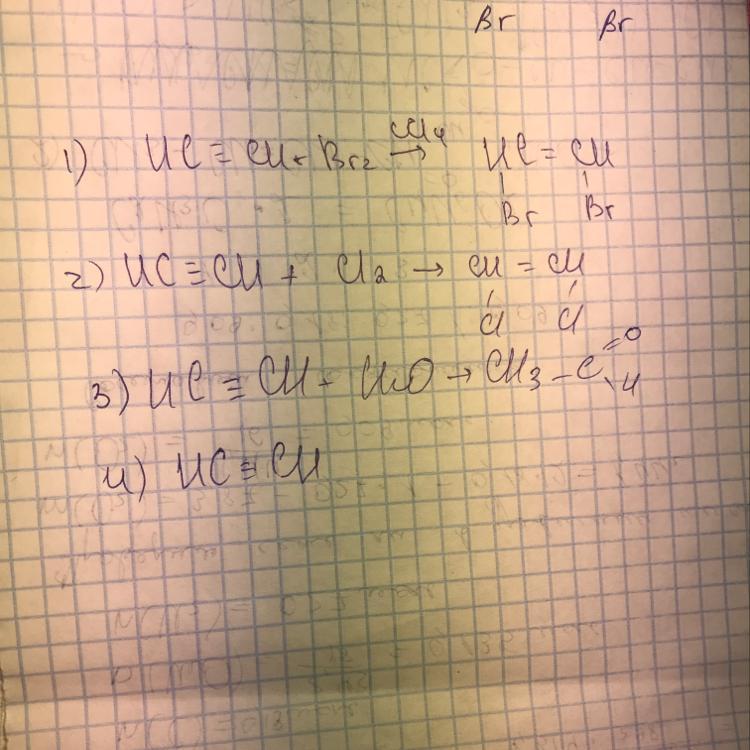 Br Br
1) HC ≡ CH + Br2 CCl4 → HC = CH
Br Br
2) HC ≡ CH + Cl2 → CH = CH
Cl Cl
3) HC ≡ CH + H2O → CH3 - C =O
\H
4) HC ≡ CH